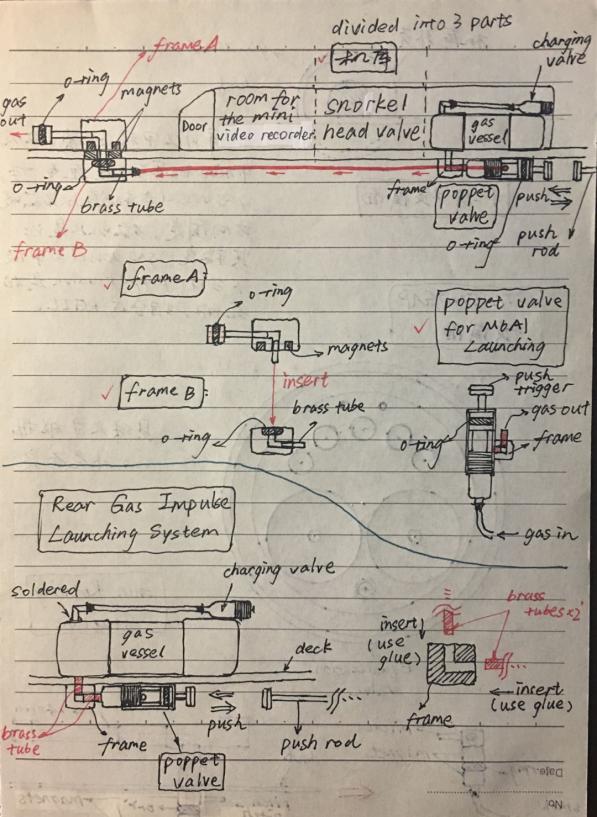 divided into 3 parts
frame A
机库
charging
valve
o-ring
magnets
gas
out
Door
room for
the mini
video recorder
snorkel
head valve
gas
vessel
o-ring
brass tube
frame
poppet
valve
push
o-ring
push
rod
frame B
frame A:
o-ring
magnets
poppet valve
for M6A1
Launching
insert
frame B:
brass tube
o-ring
push
trigger
gas out
o-ring
frame
gas in
Rear Gas Impulse
Launching System
soldered
charging valve
gas
vessel
deck
brass
tubes×2
insert
(use
glue)
insert
(use glue)
frame
push
brass
tube
frame
push rod
poppet
valve
Date:
No.